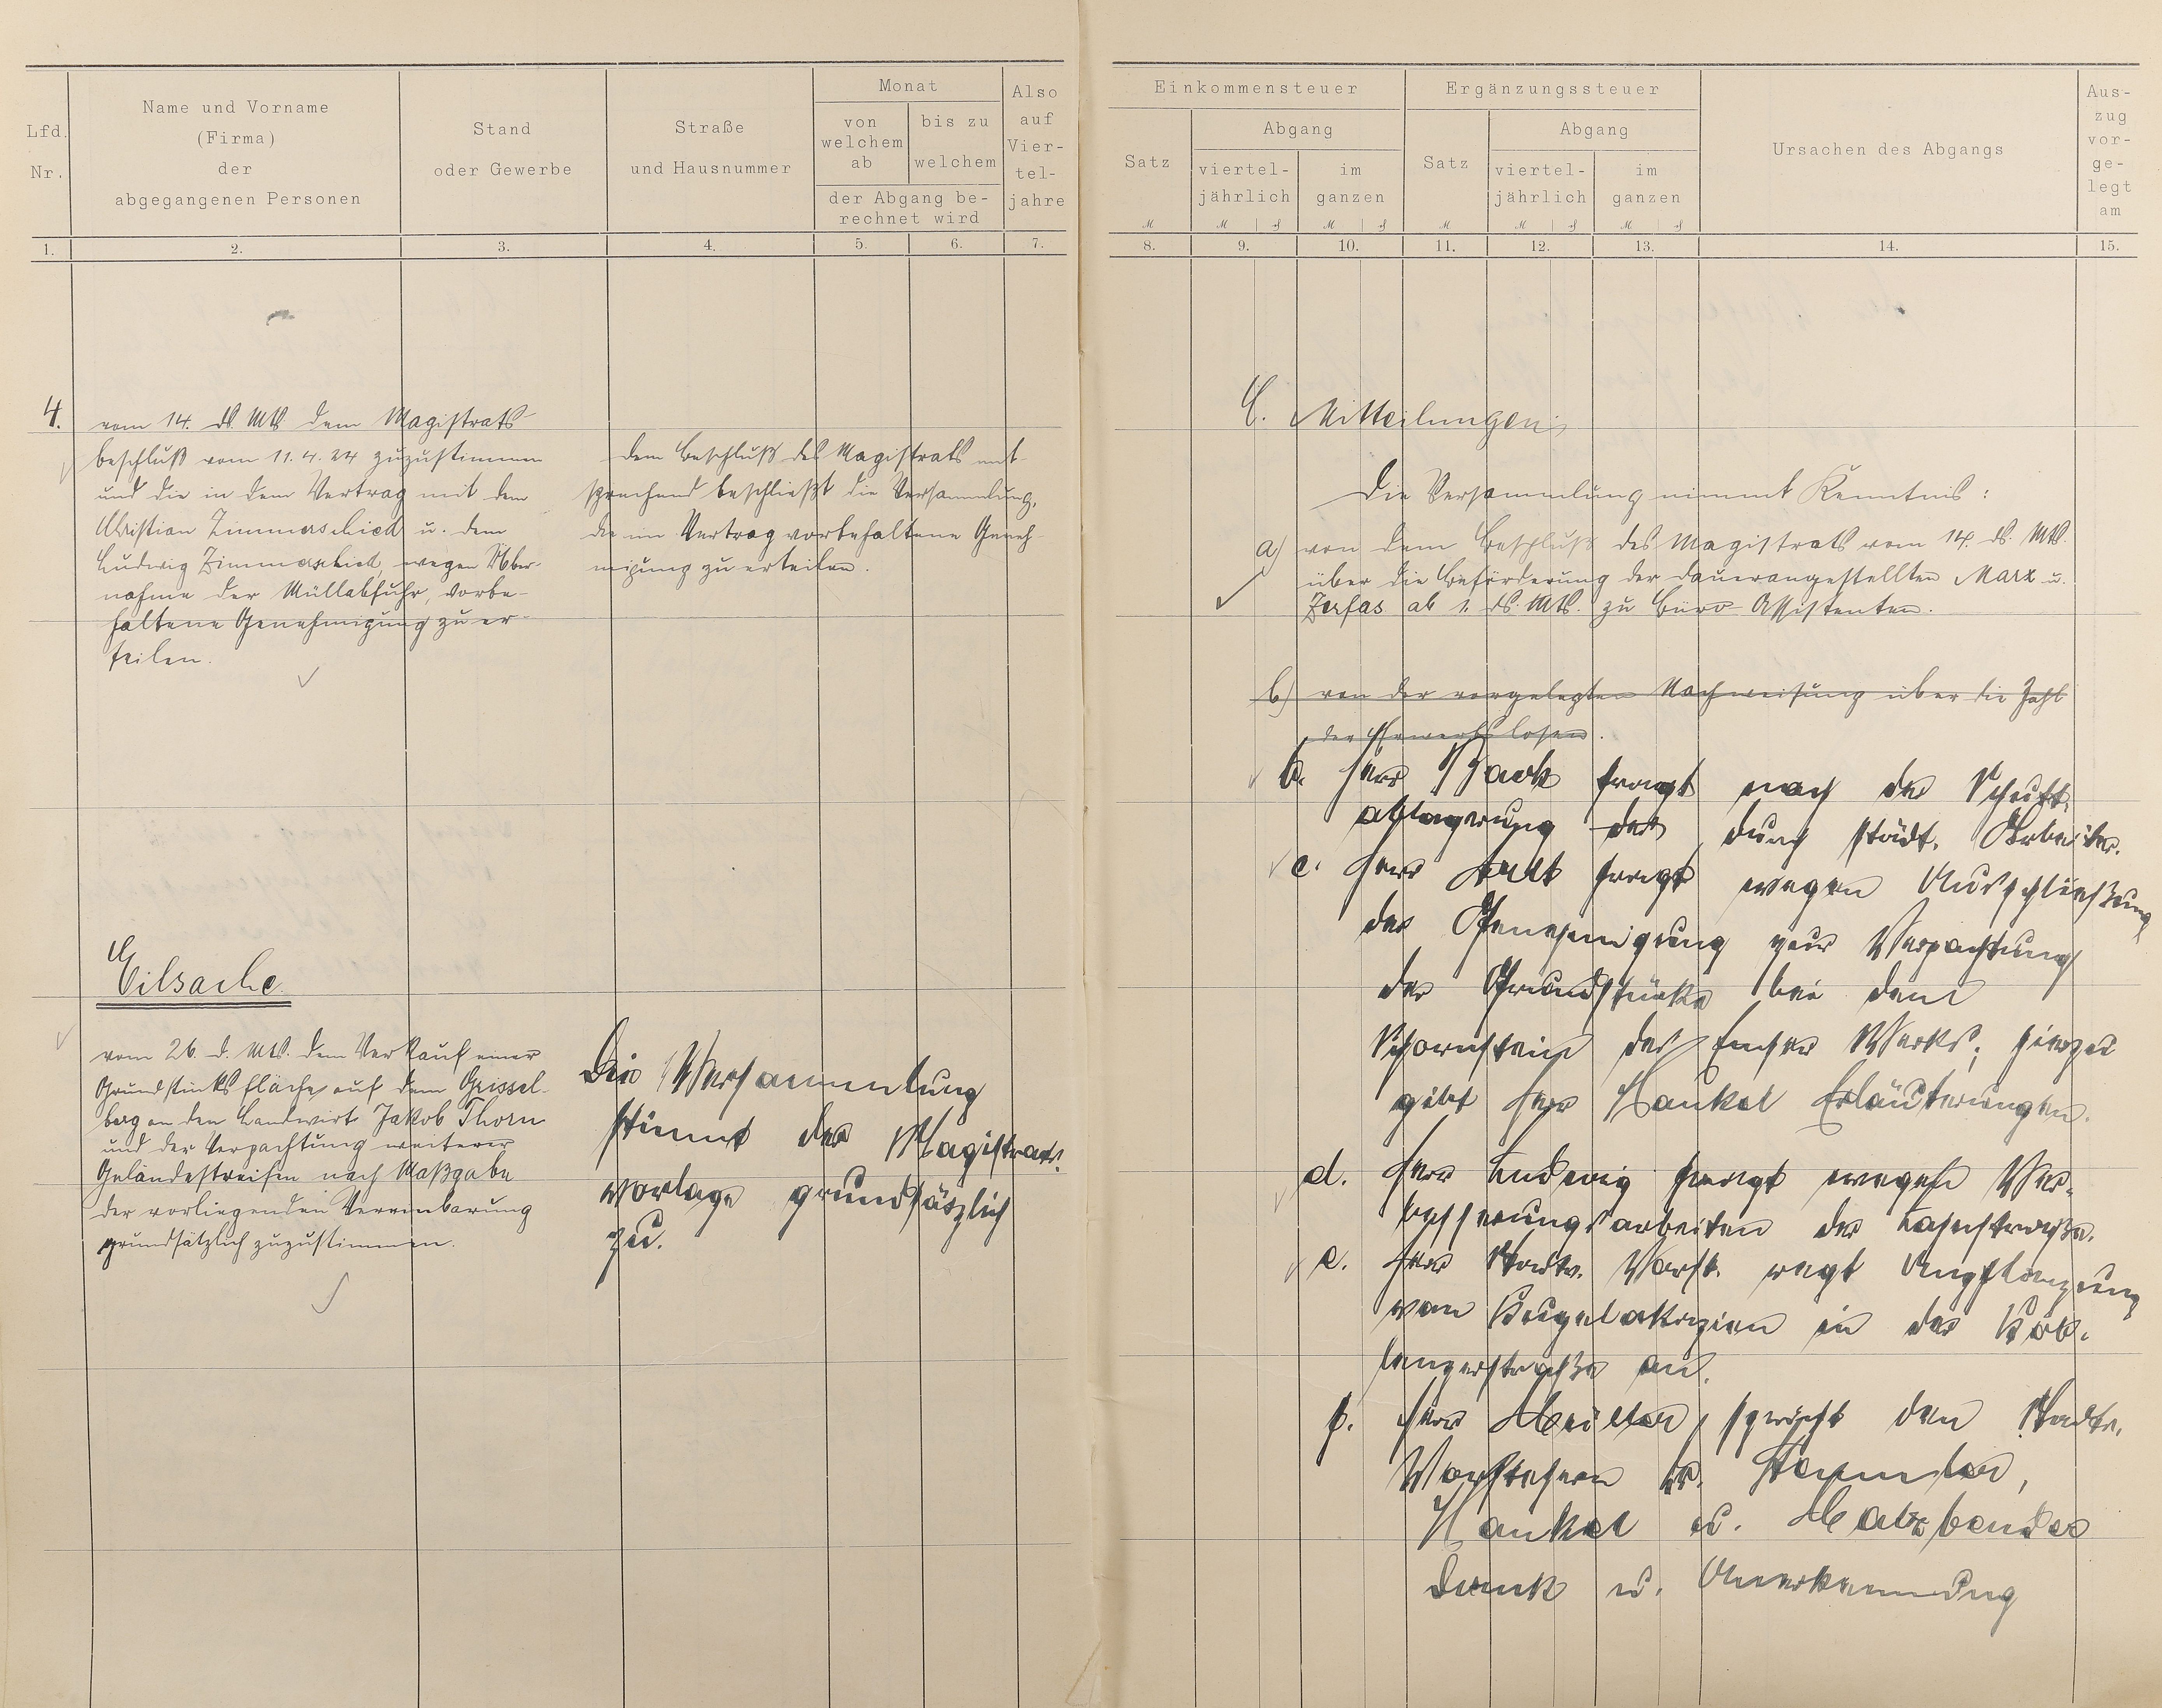 Lfd. Nr.
Name und Vorname
(Firma)
der
abgegangenen Personen
Stand
oder Gewerbe
Straße
und Hausnummer
Monat
von welchem ab
bis zu welchem
der Abgang be-
rechnet wird
Also auf Vier-tel-jahre
1. 2. 3. 4. 5. 6. 7.
4.
vom 14. ds. Mts dem Magistrats-
beschluß vom 11.4.24 zuzustimmen
und die in dem Vertrag mit dem
Christian Zimmerschied u. dem
Ludwig Zimmerschied, wegen Über-
nahme der Müllabfuhr, vorbe-
haltene Genehmigung zu er-
teilen.
Dem Beschluß des Magistrats ent-
sprechend beschließt die Versammlung,
die im Vertrag vorbehaltene Geneh-
migung zu erteilen.
Eilsache
vom 26. d. Mts. dem Verkauf einer
Grundstücksfläche auf dem Grissel-
berg an den Landwirt Jakob Thorn
und der Verpachtung weiterer
Geländestreifen nach Maßgabe
der vorliegenden Vereinbarung
grundsätzlich zuzustimmen.
Die Versammlung
stimmt der Magistrats-
vorlage grundsätzlich
zu.
Einkommensteuer
Satz
Abgang
viertel-
jährlich
im
ganzen
Ergänzungssteuer
Satz
Abgang
viertel-
jährlich
im
ganzen
Ursachen des Abgangs
Aus-
zug
vor-
ge-
legt
am
8. 9. 10. 11. 12. 13. 14. 15.
C. Mitteilungen
Die Versammlung nimmt Kenntnis:
a) von dem Beschluß des Magistrats vom 14. ds. Mts.
über die Beförderung der Dauerangestellten Marx u.
Zerfas ab 1. ds. Mts. zu Büro-Assistenten.
b) von der vorgelegten Nachweisung über die Zahl
der Erwerbslosen.
b. Herr Back fragt nach der Schutt-
ablagerung der durch städt. Arbeiter.
c. Herr fragt wegen Ausschließung
der Genehmigung zur Verpachtung
der Grundstücke bei dem
Schornstein des Emser Werks; hierzu
gibt Herr Hankel Erläuterungen.
d. Herr Ludwig fragt wegen Ver-
besserungsarbeiten der Lahnstraße.
e. Herr Stadtv. Vorst. regt Anpflanzung
von Kugelakazien in der Kob-
lenzerstraße an.
f. Herr Müller spricht den Stadtv.
Vorstehern
Hankel u. Matzbender
Dank u. Anerkennung